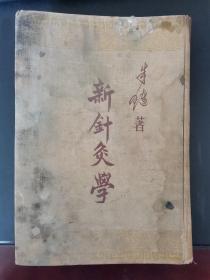 朱琏 著
新針灸學